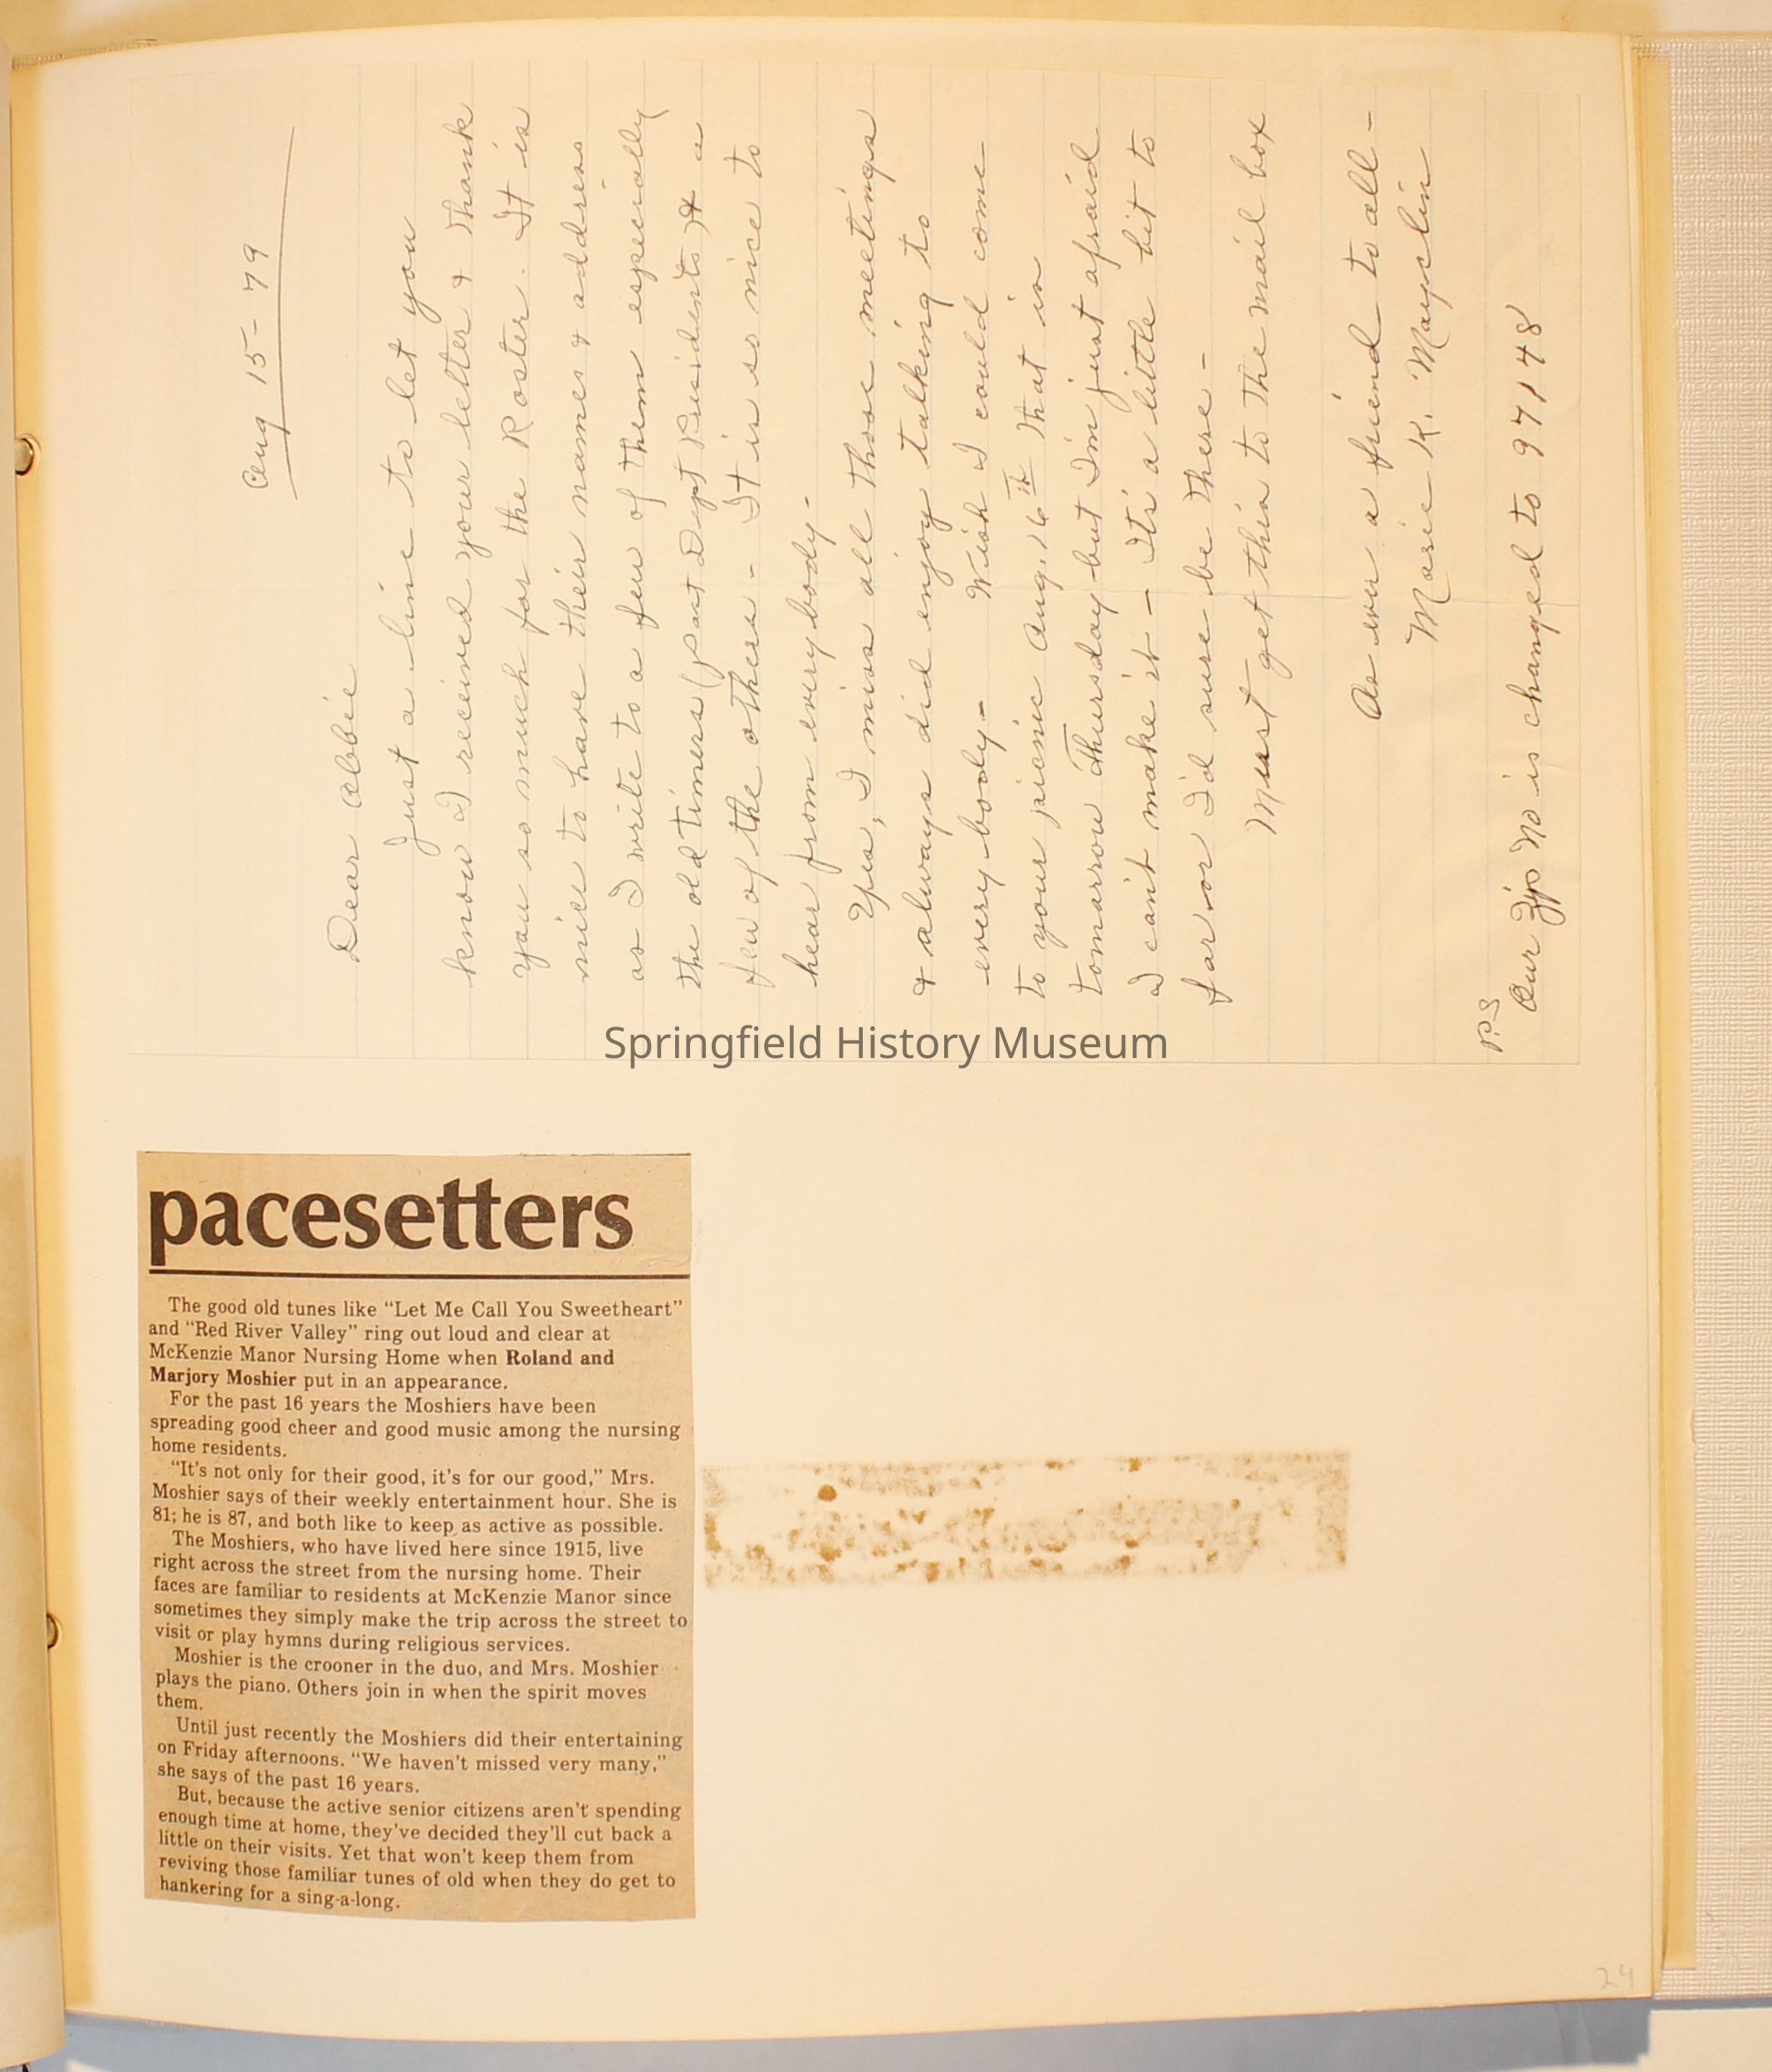 Aug 15 - 79
Dear Abbie
Just a line to let you
know I received your letter & thank
you so much for the Roster. It is
nice to have their names & address
as I write to a few of them especially
the old timers (past Dept Presidents) & a
few of the others - It is so nice to
hear from every body -
Yes, I miss all those meetings
& always did enjoy talking to
every body - Wish I could come
to your picnic Aug. 16th that is
tomarrow Thursday but I'm just afraid
I can't make it - It's a little bit to
far or I'd sure be there -
Must get this to the mail box
As ever a friend to all -
Marie K. Mayclin
P.S
Our Zip No is changed to 97148
Springfield History Museum
pacesetters
The good old tunes like “Let Me Call You Sweetheart”
and “Red River Valley” ring out loud and clear at
McKenzie Manor Nursing Home when Roland and
Marjory Moshier put in an appearance.
For the past 16 years the Moshiers have been
spreading good cheer and good music among the nursing
home residents.
“It's not only for their good, it's for our good,” Mrs.
Moshier says of their weekly entertainment hour. She is
81; he is 87, and both like to keep as active as possible.
The Moshiers, who have lived here since 1915, live
right across the street from the nursing home. Their
faces are familiar to residents at McKenzie Manor since
sometimes they simply make the trip across the street to
visit or play hymns during religious services.
Moshier is the crooner in the duo, and Mrs. Moshier
plays the piano. Others join in when the spirit moves
them.
Until just recently the Moshiers did their entertaining
on Friday afternoons. “We haven't missed very many,”
she says of the past 16 years.
But, because the active senior citizens aren't spending
enough time at home, they've decided they'll cut back a
little on their visits. Yet that won't keep them from
reviving those familiar tunes of old when they do get to
hankering for a sing-a-long.
29